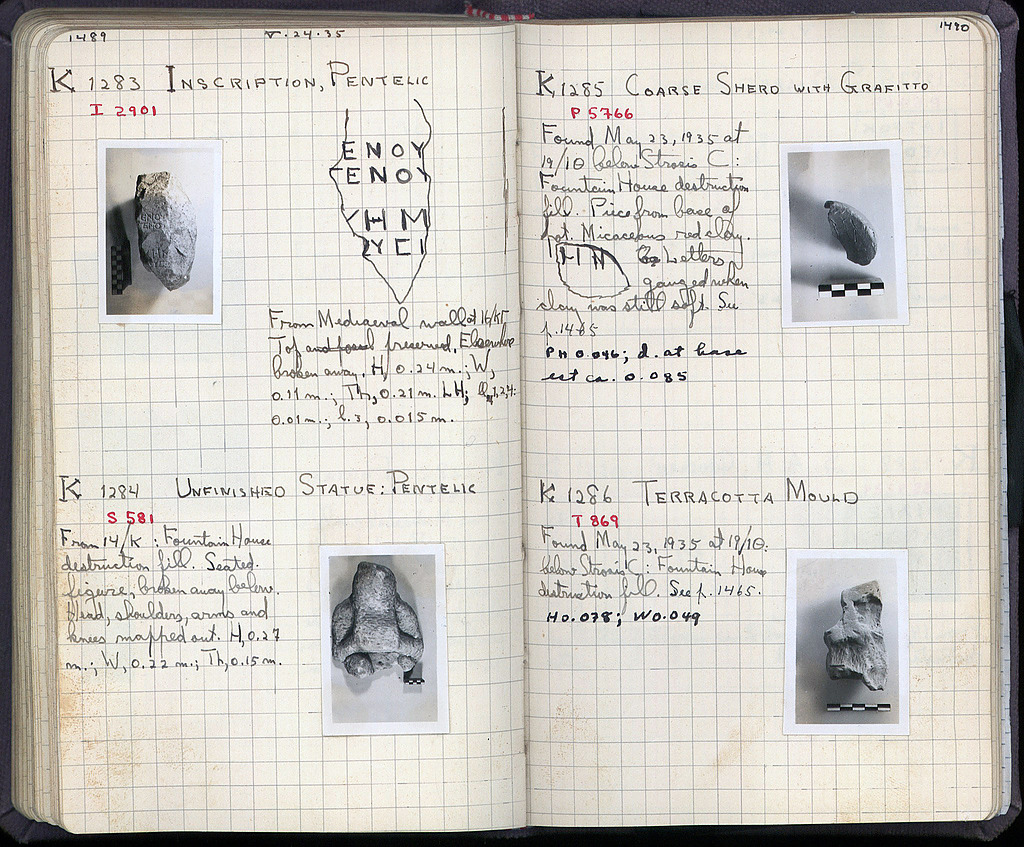 1489
V.24.35
K 1283 INSCRIPTION, PENTELIC
I 2901
ENOY
ENOY
YHM
YEI
From Mediaeval wall at 16/ΚΓ
Top and found preserved. Elsewhere
broken away. H, 0.24 m.; W,
0.11 m.; Th, 0.21 m. LH; ll. 1, 2, 4:
0.01 m.; l. 3, 0.015 m.
K 1284 UNFINISHED STATUE: PENTELIC
S 581
From 14/K : Fountain House
destruction fill. Seated
figure, broken away below.
Head, shoulders, arms and
knees mapped out. H, 0.27
m.; W, 0.22 m.; Th, 0.15 m.
1490
K 1285 COARSE SHERD WITH GRAFITTO
P 5766
Found May 23, 1935 at
19/ΙΘ below Strosis C:
Fountain House destruction
fill. Piece from base of
pot. Micaceous red clay.
HN Letters
gauged when
clay was still soft. See
p. 1465
PH 0.046; d. at base
est ca. 0.085
K 1286 TERRACOTTA MOULD
T 869
Found May 23, 1935 at 19/ΙΘ:
below Strosis C: Fountain House
destruction fill. See p. 1465.
H 0.078; W 0.049